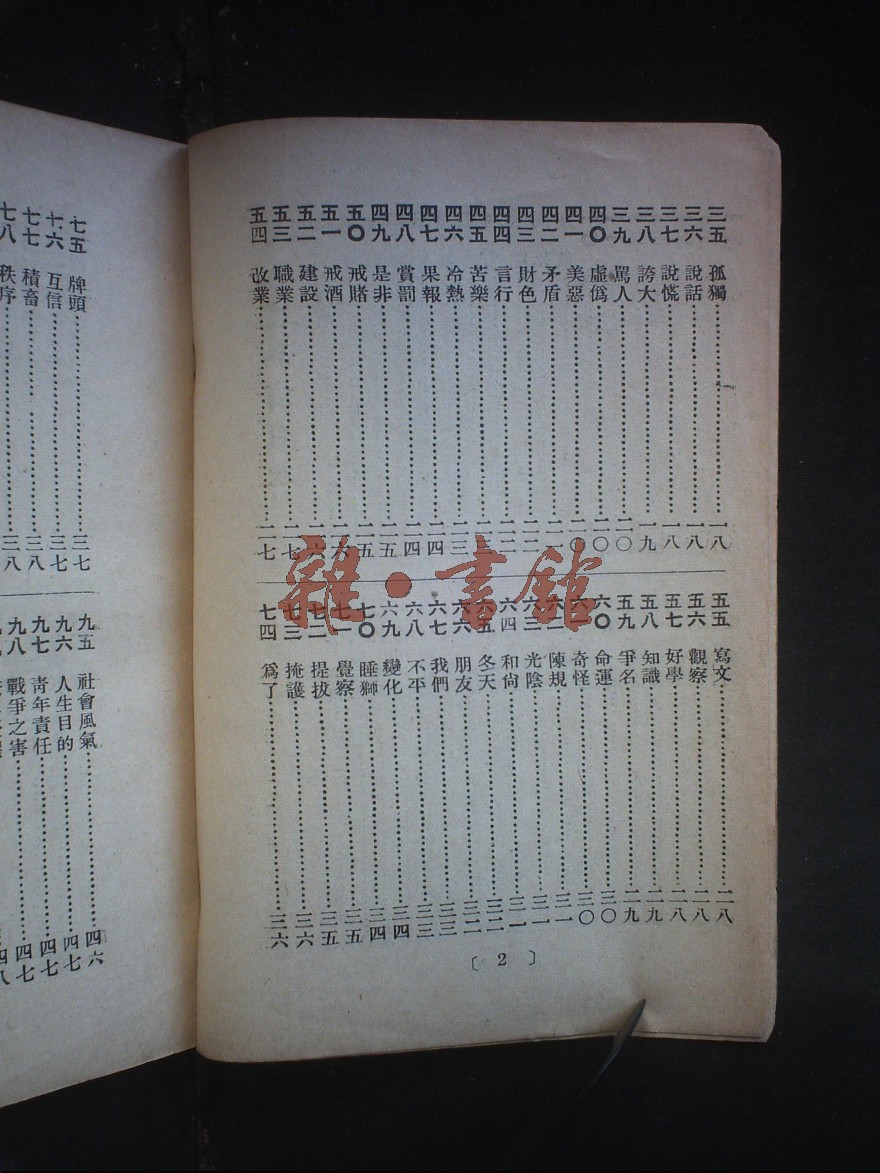 三五 孤獨 一八
三六 說話 一八
三七 說慌 一八
三八 誇大 一九
三九 罵人 二〇
四〇 虛僞 二〇
四一 美惡 二〇
四二 矛盾 二一
四三 財色 二二
四四 言行 二二
四五 苦樂 二三
四六 冷熱 二三
四七 果報 二四
四八 賞罰 二四
四九 是非 二五
五〇 戒賭 二五
五一 戒酒 二六
五二 建設 二六
五三 職業 二七
五四 改業 二七
五五 寫文 二八
五六 觀察 二八
五七 好學 二八
五八 知識 二九
五九 爭名 二九
六〇 命運 三〇
六一 奇怪 三〇
六二 陳規 三一
六三 光陰 三一
六四 和尙 三一
六五 冬天 三二
六六 朋友 三二
六七 我們 三三
六八 不平 三三
六九 變化 三四
七〇 睡獅 三四
七一 覺察 三五
七二 提拔 三五
七三 掩護 三六
七四 爲了 三六
〔 2 〕
雜·書館
七五 牌頭 三七
七六 互信 三七
七七 積畜 三八
七八 秩序 三八
九五 社會風氣 四六
九六 人生目的 四七
九七 青年責任 四七
九八 戰爭之害 四七
四八